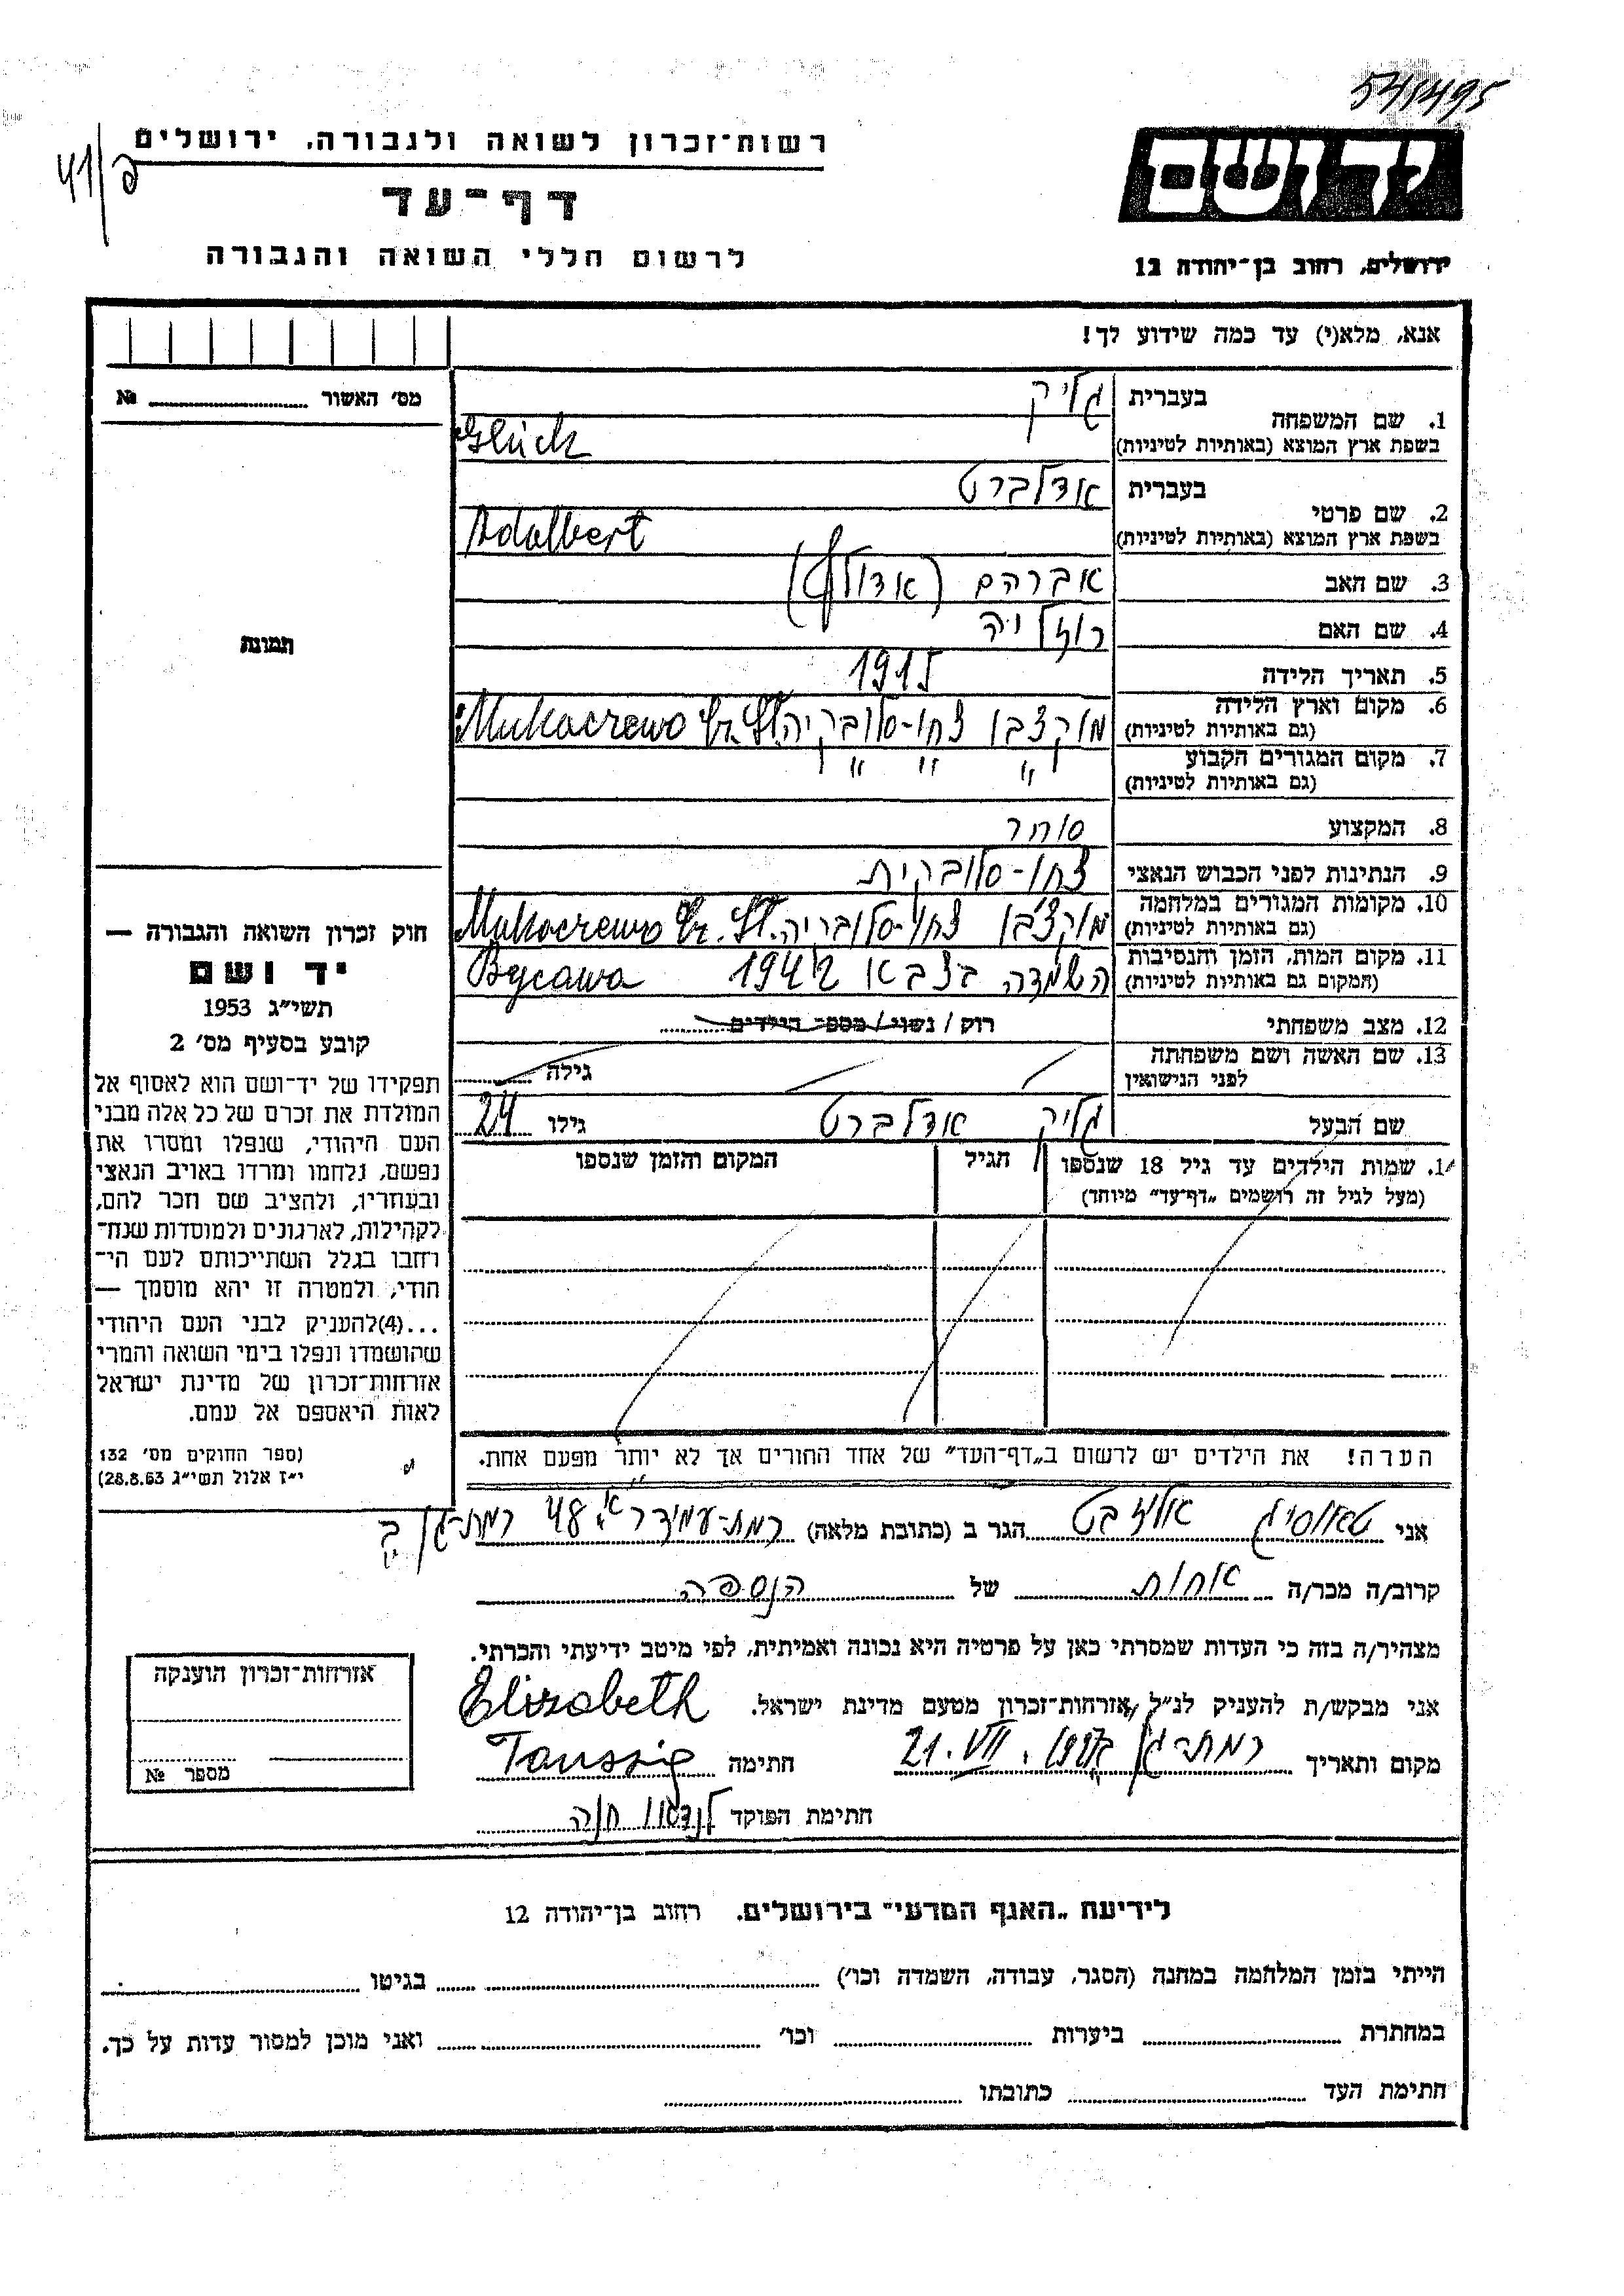 541495
רשות־זכרון לשואה ולגבורה, ירושלים
דף־עד
לרשום חללי השואה והגבורה
יד ושם
ירושלים, רחוב בן־יהודה 12
אנא, מלא(י) עד כמה שידוע לך!
מס׳ האשור № 
תמונה
1. שם המשפחה בעברית גליק
בשפת ארץ המוצא (באותיות לטיניות) Glück
2. שם פרטי בעברית אדלברט
בשפת ארץ המוצא (באותיות לטיניות) Adalbert
3. שם האב אברהם (אדולף)
4. שם האם רוזליה
5. תאריך הלידה 1915
6. מקום וארץ הלידה (גם באותיות לטיניות) מוקצבו צחו-סלובקיה Mukaczewo
7. מקום המגורים הקבוע (גם באותיות לטיניות) " " "
8. המקצוע סוחר
9. הנתינות לפני הכבוש הנאצי צחו-סלובקית
10. מקומות המגורים במלחמה (גם באותיות לטיניות) מוקצבו צחו-סלובקיה Mukaczewo
11. מקום המות, הזמן והנסיבות (המקום גם באותיות לטיניות) השמדה בצבא 1942 Bycawa
12. מצב משפחתי רוק / נשוי / מספר הילדים
13. שם האשה ושם משפחתה לפני הנישואין גילה
שם הבעל גליק אדלברט גילו 24
1. שמות הילדים עד גיל 18 שנספו הגיל המקום והזמן שנספו
(מעל לגיל זה רושמים „דף־עד" מיוחד)
הערה! את הילדים יש לרשום ב„דף־העד" של אחד ההורים אך לא יותר מפעם אחת.
חוק זכרון השואה והגבורה —
יד ושם
תשי״ג 1953
קובע בסעיף מס׳ 2
תפקידו של יד־ושם הוא לאסוף אל
המולדת את זכרם של כל אלה מבני
העם היהודי, שנפלו ומסרו את
נפשם, נלחמו ומרדו באויב הנאצי
ובעוזריו, ולהציב שם וזכר להם,
לקהילות, לארגונים ולמוסדות שנח־
רחבו בגלל השתייכותם לעם הי־
הודי, ולמטרה זו יהא מוסמך —
...(4)להעניק לבני העם היהודי
שהושמדו ונפלו בימי השואה והמרי
אזרחות־זכרון של מדינת ישראל
לאות היאספם אל עמם.
(ספר החוקים מס׳ 132
י״ז אלול תשי״ג 28.8.53)
אני טאוסיג אליזבט הגר ב (כתובת מלאה) רמת-עמידר 48 רמת-גן
קרוב/ה מכר/ה אחות של הנספה
מצהיר/ה בזה כי העדות שמסרתי כאן על פרטיה היא נכונה ואמיתית, לפי מיטב ידיעתי והכרתי.
אני מבקש/ת להעניק לנ״ל אזרחות־זכרון מטעם מדינת ישראל. Elizabeth
מקום ותאריך רמת-גן 21.VII. חתימה Taussig
חתימת הפוקד לנדאו חנה
אזרחות־זכרון הוענקה
מספר №
לידיעת „האגף המדעי" בירושלים, רחוב בן־יהודה 12
הייתי בזמן המלחמה במחנה (הסגר, עבודה, השמדה וכו׳) בגיטו
במחתרת ביערות וכו׳ ואני מוכן למסור עדות על כך.
חתימת העד כתובתו